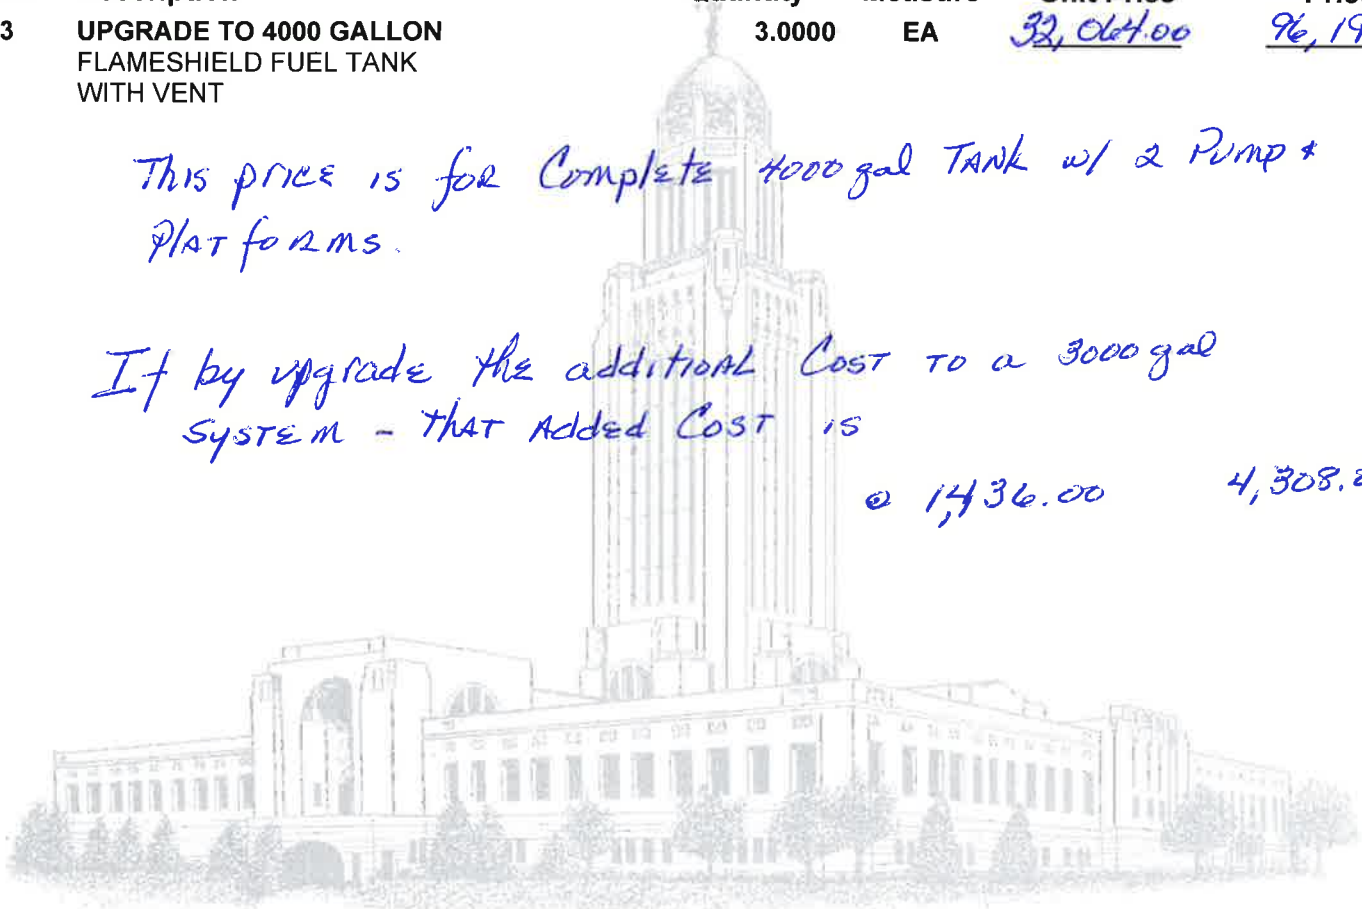 3 UPGRADE TO 4000 GALLON 3.0000 EA 32,064.00 96,19
FLAMESHIELD FUEL TANK
WITH VENT
This price is for Complete 4000 gal TANK w/ 2 Pump &
Platforms.
If by upgrade the additional Cost to a 3000 gal
System - That Added Cost is
@ 1,436.00 4,308.